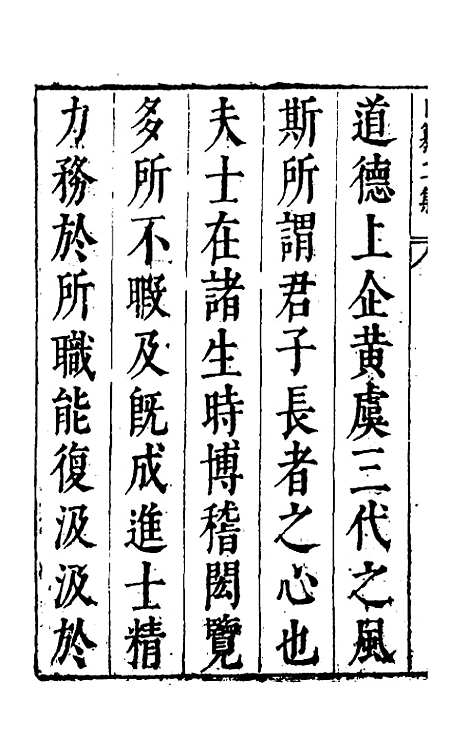 道德上企黄虞三代之風
斯所謂君子長者之心也
夫士在諸生時博稽閎覽
多所不暇及既成進士精
力務於所職能復汲汲於